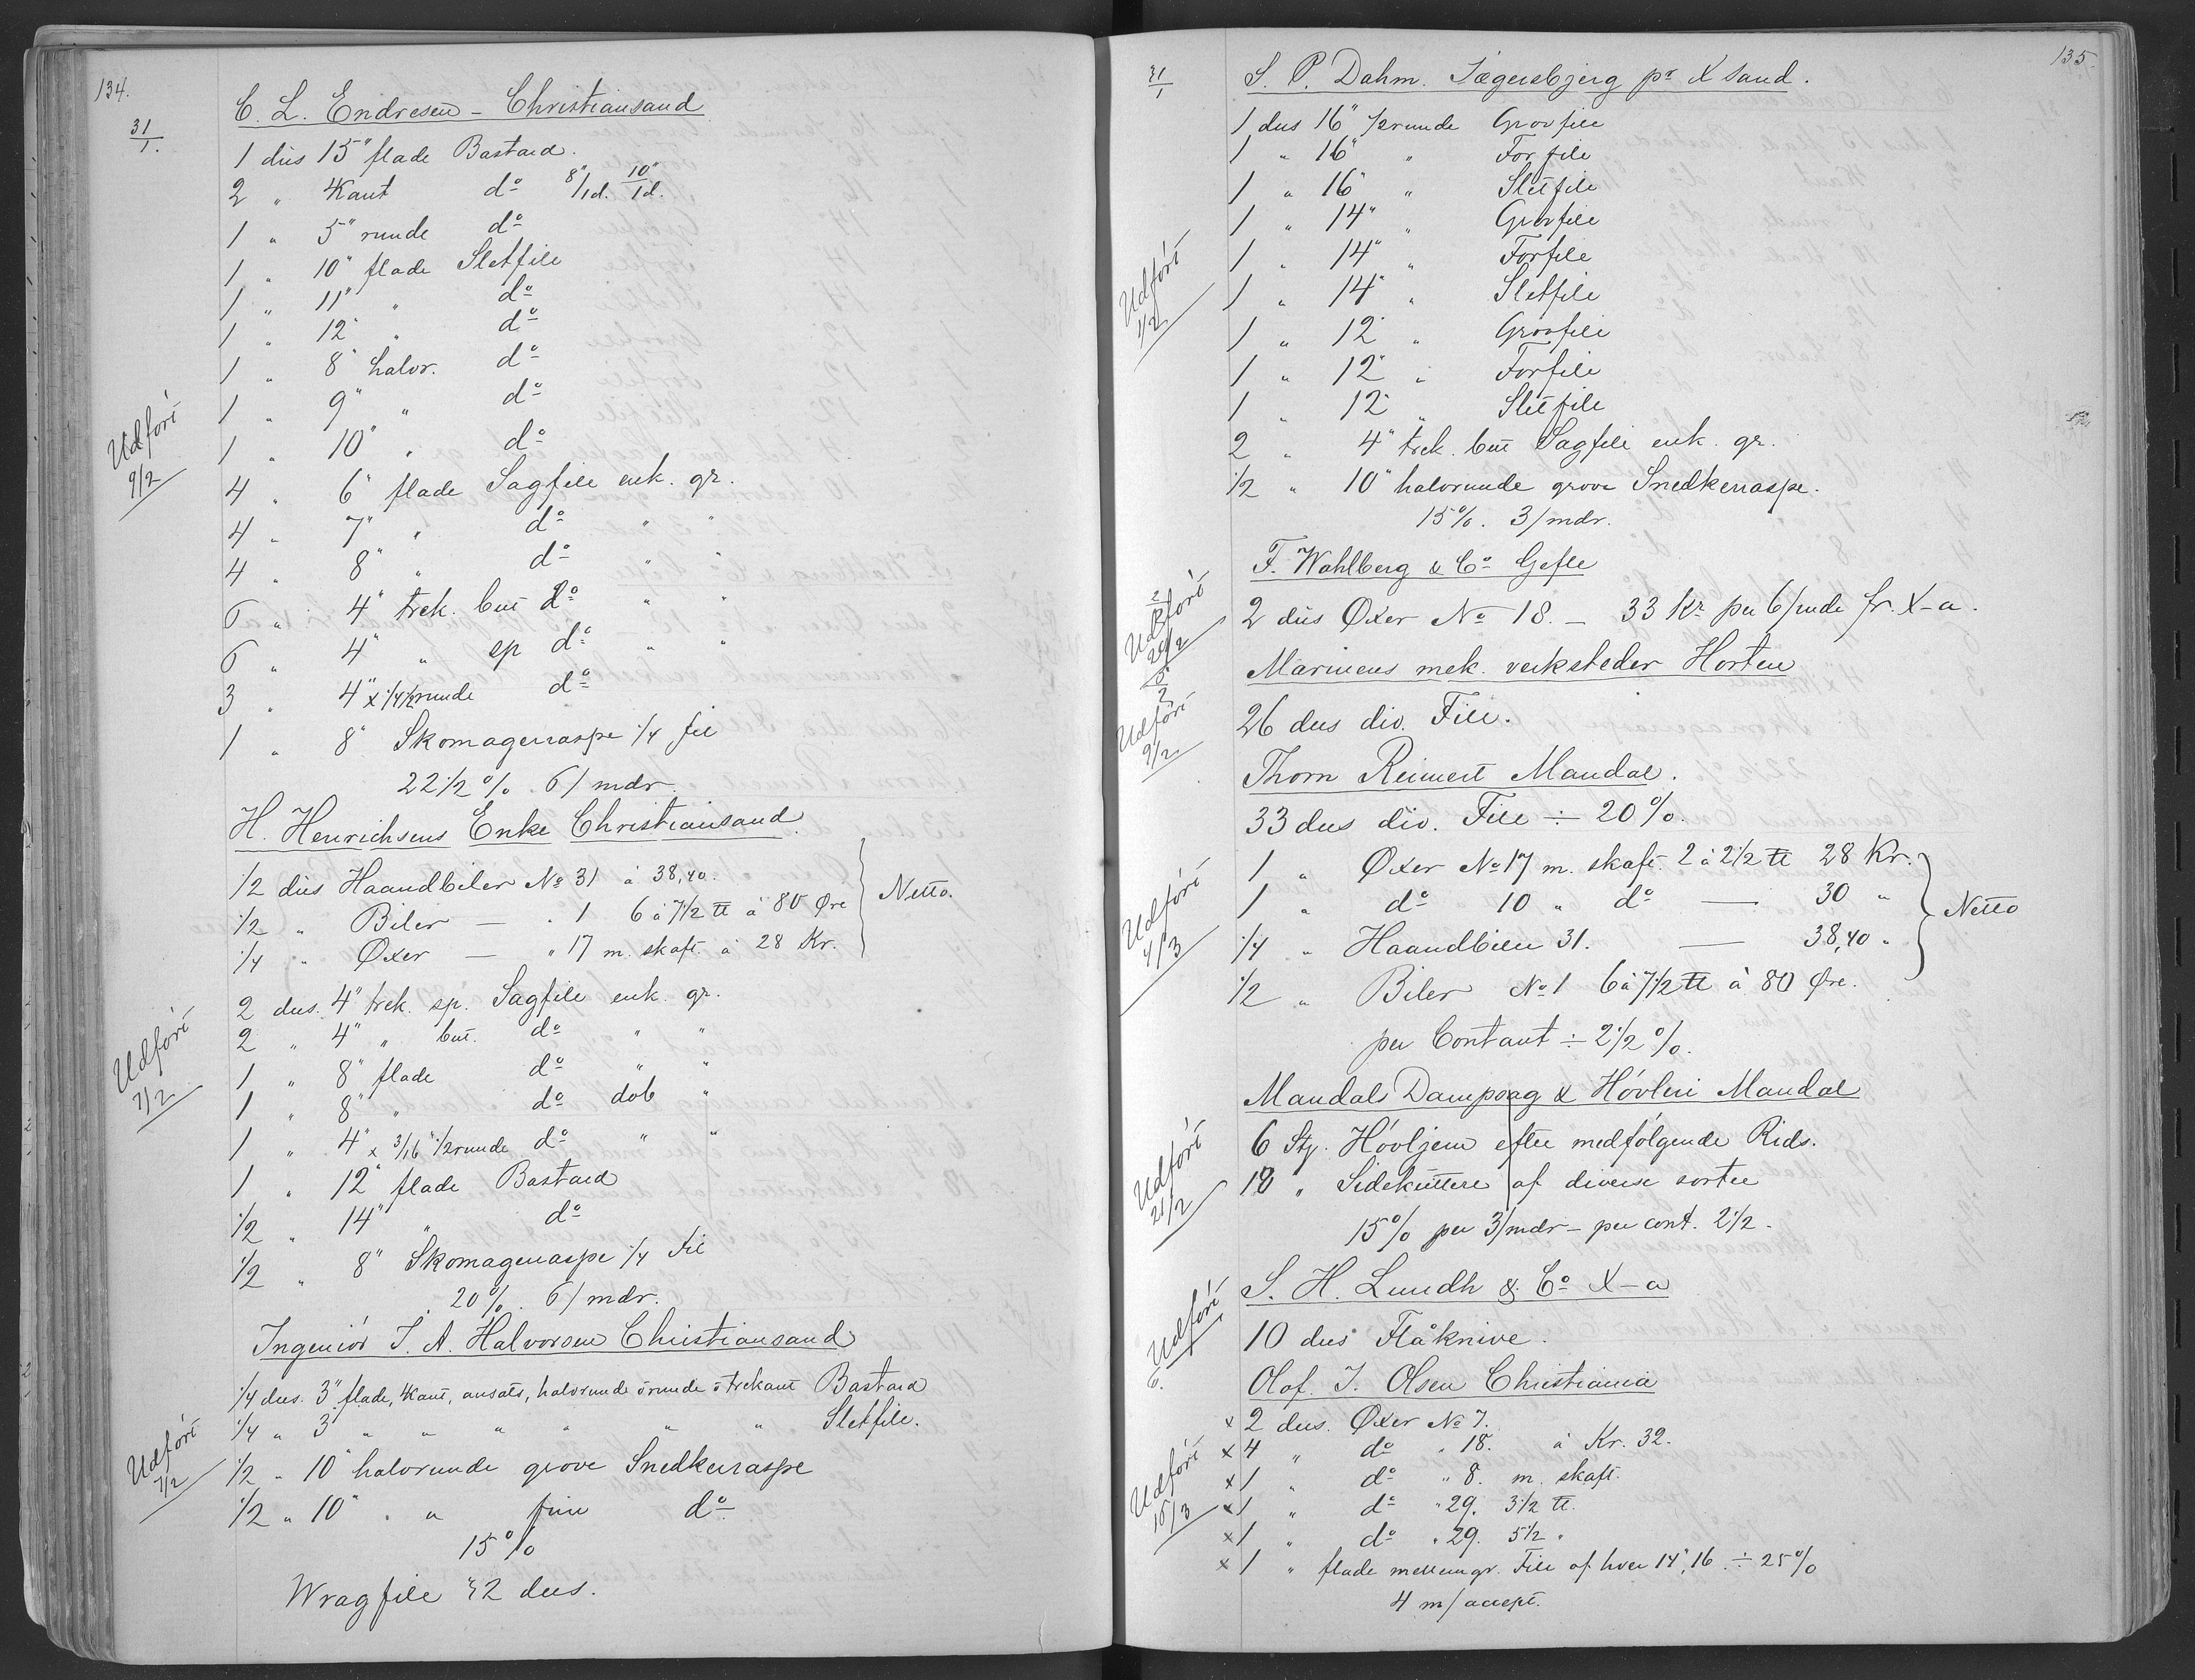 134.
31/1.
C. L. Endresen - Christiansand
1 dus 15" flade Bastard.
2 " 4Kant do 8"/1d. 10"/1d.
1 " 5" runde do
1 " 10" flade Sletfile
1 " 11" " do
1 " 12" " do
1 " 8" halvr. do
1 " 9" " do
1 " 10" " do
Udført 9/2
4 " 6" flade Sagfile enk. gr.
4 " 7" " do " "
4 " 8" " do " "
6 " 4" trek. but do " "
6 " 4" " sp do " "
3 " 4" x 1/4 1/2runde do
1 " 8" Skomagerraspe 1/4 fil
22 1/2 % 6/mdr.
H. Henrichsens Enke Christiansand
1/2 dus Haandbiler No 31 à 38,40.
1/2 " Biler — " 1 6 à 7 1/2 ℔ à 80 Øre
1/4 " Øxer — " 17 m. skaft. à 28 Kr.
Netto.
2 dus. 4" trek. sp. Sagfile enk. gr.
2 " 4" " but. do " "
Udført 7/2
1 " 8" flade do " "
1 " 8" " do dob "
1 " 4" x 3/16" 1/2runde do " "
1 " 12" flade Bastard
1/2 " 14" " do
1/2 " 8" Skomagerraspe 1/4 fil
20 %. 6/mdr.
Ingeniør J. A. Halvorsen Christiansand
1/4 dus. 3" flade, 4kant, ansats, halvrunde runde trekant Bastard
1/4 " 3" " " " " " " Sletfile.
Udført 7/2
1/2 " 10" halvrunde grove Snedkerraspe
1/2 " 10" " " fine do
15 %
Wragfile 32 dus.
135.
31/1
S. P. Dahm. Jægersbjerg pr X sand.
1 dus 16" 1/2runde Grovfile
1 " 16" " Forfile
1 " 16" " Sletfile
1 " 14" " Grovfile
1 " 14" " Forfile
Udført 1/2
1 " 14" " Sletfile
1 " 12" " Grovfile
1 " 12" " Forfile
1 " 12" " Sletfile
2 " 4" trek. but Sagfile enk. gr.
1/2 " 10" halvrunde grove Snedkerraspe.
15 %. 3/mdr.
F. Wahlberg & Co Gefle
Udført 20/2
2 dus Øxer No 18. — 33 Kr per 6/mde fr. X-a.
Marinens mek. verksteder Horten
Udført 9/2
26 dus div. File.
Thorn Reinert Mandal.
33 dus div. File ÷ 20 %.
1 " Øxer No 17 m. skaft. 2 à 2 1/2 ℔ 28 Kr.
1 " do 10 " do — 30 "
Netto
Udført 4/3
1/4 " Haandbiler 31. — 38,40 "
1/2 " Biler No 1 6 à 7 1/2 ℔ à 80 Øre.
per Contant ÷ 2 1/2 %.
Mandals Dampsag & Høvleri Mandal
6 Stz. Høvljern efter medfølgende Rids.
Udført 21/2
18 " Sidekuttere af diverse sorter
15 % per 3/mdr — per cont. 2 1/2.
S. H. Lundh & Co X-a
Udført
10 dus Flåknive.
Olaf. J. Olsen Christiania
x 2 dus. Øxer No 7.
x 4 " do " 18. à Kr. 32.
x 1 " do " 8. m. skaft.
Udført 15/3
x 1 " do " 29. 3 1/2 ℔.
x 1 " do " 29. 5 1/2 "
x 1 " flade mellemgr. File af hver 14", 16" ÷ 25 %
4 m/accept.